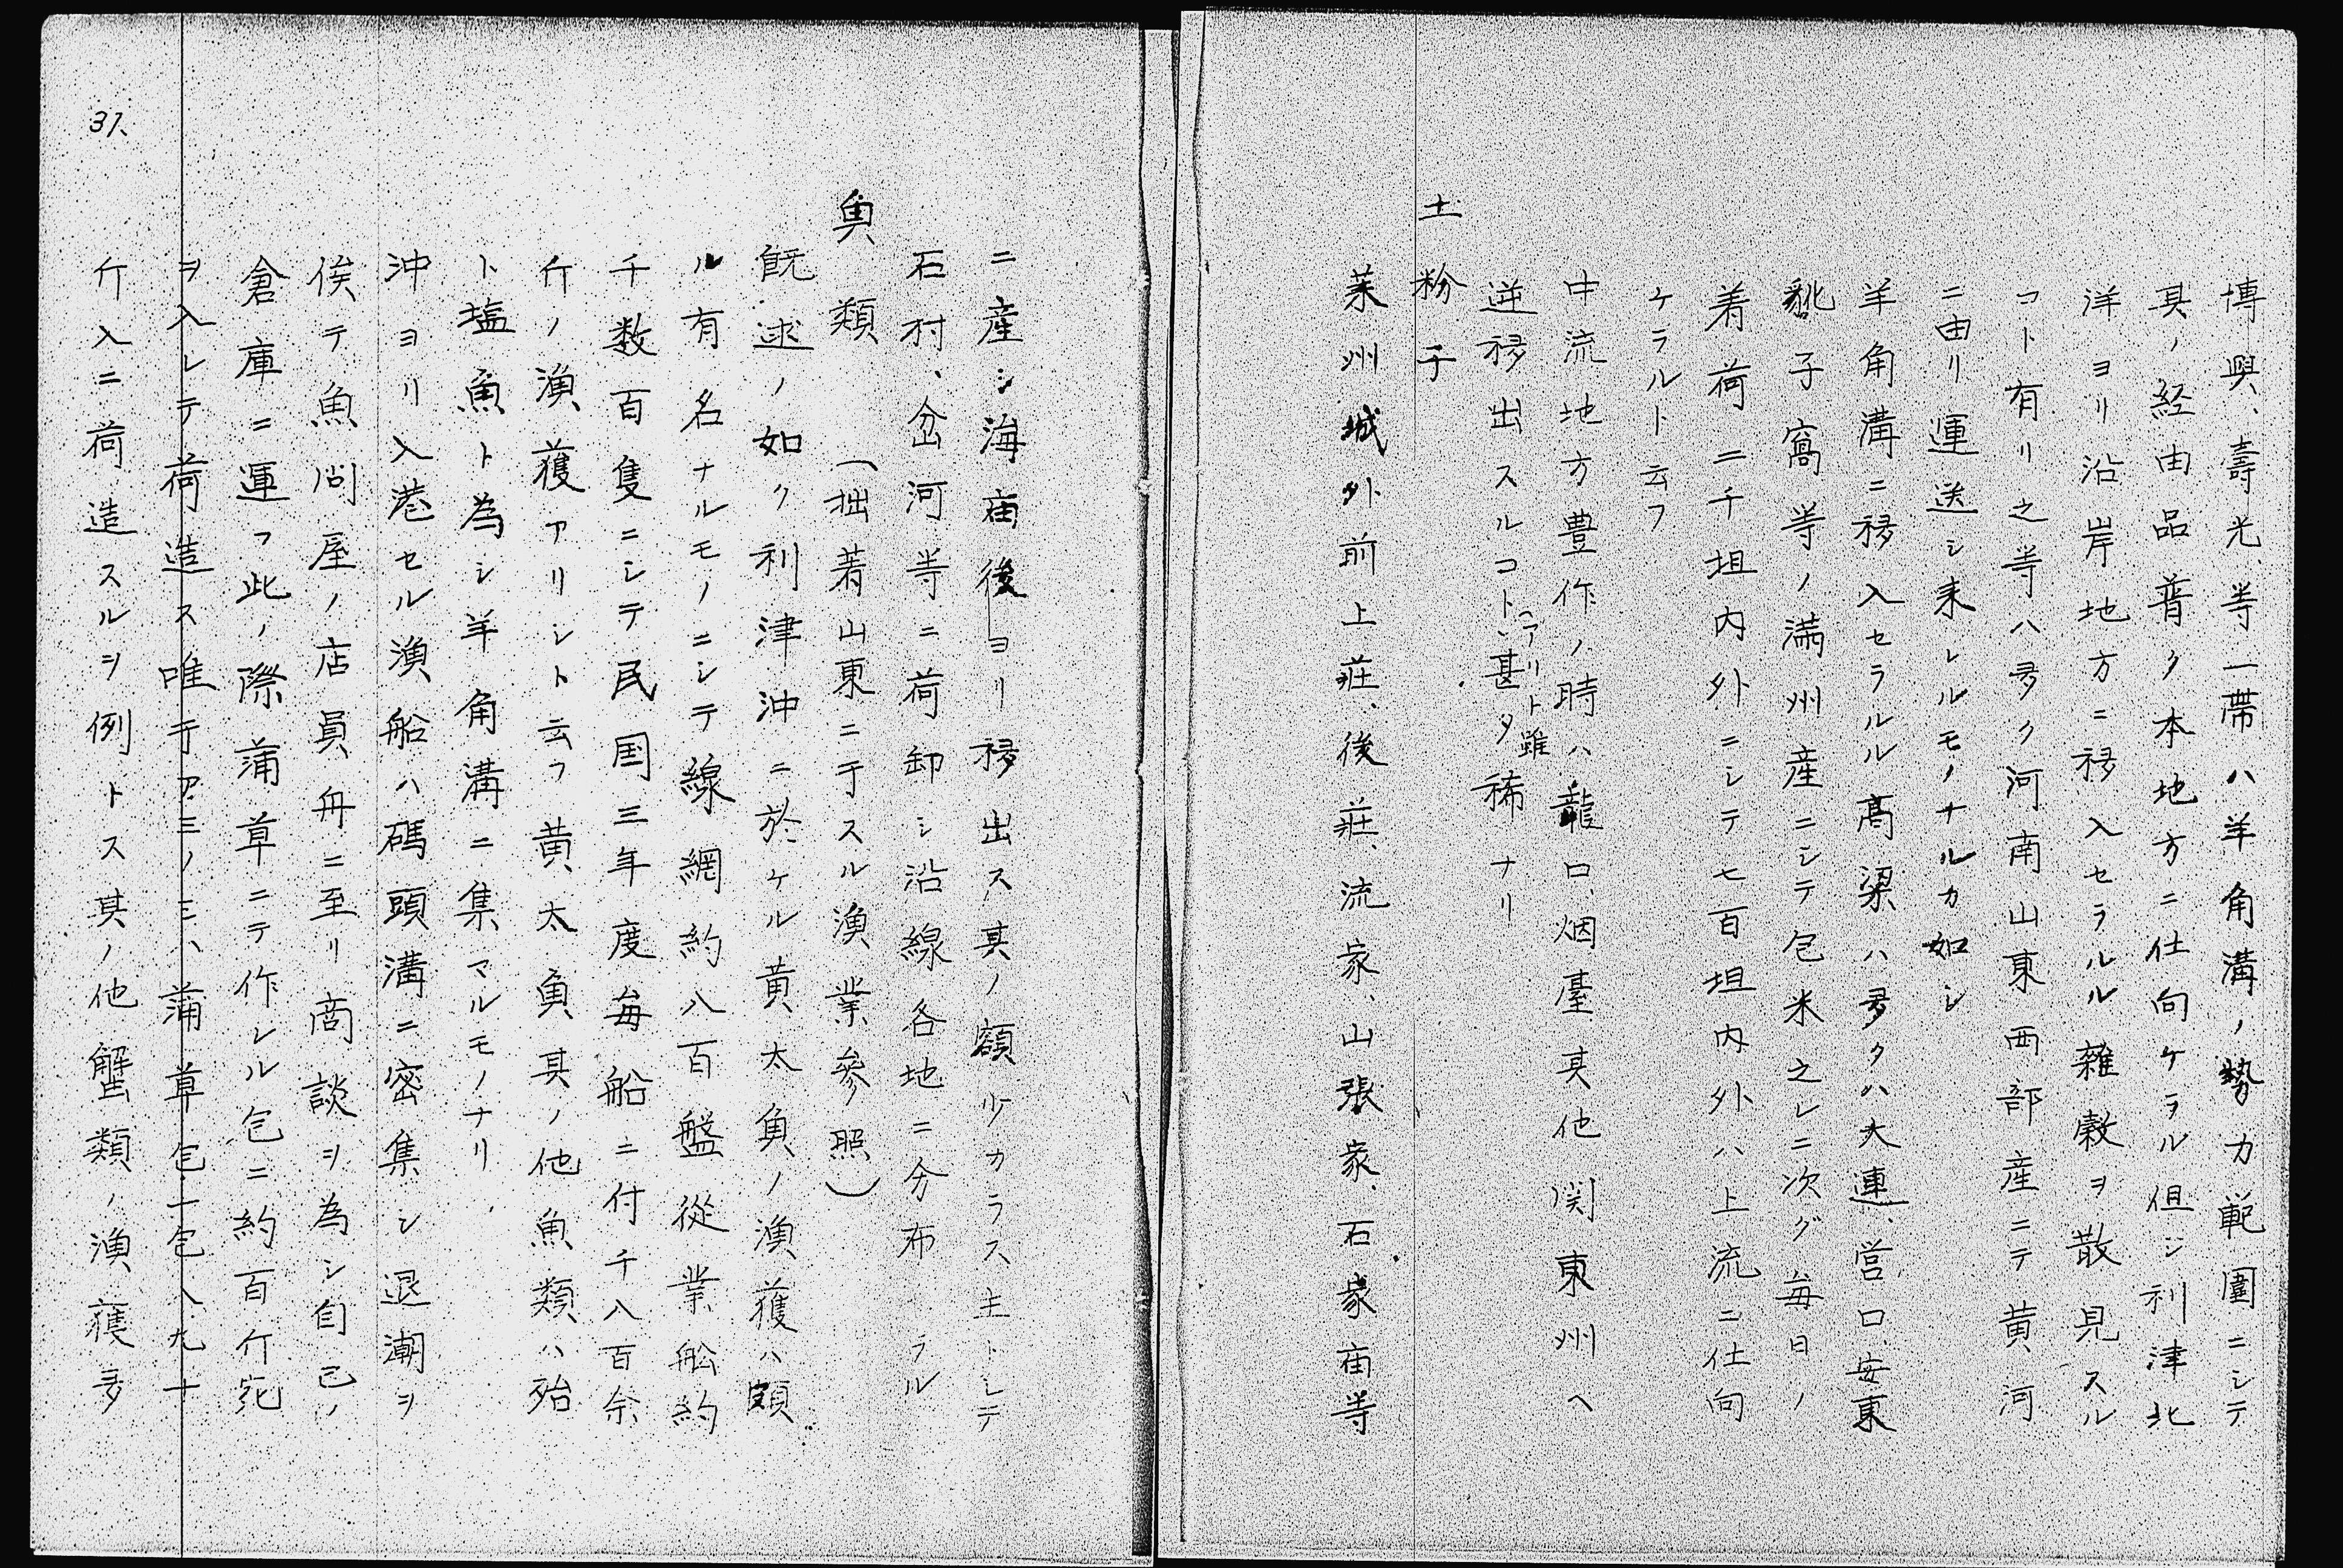 博興、壽光、等一帯ハ羊角溝ノ勢力範圍ニシテ
其ノ経由品普ク本地方ニ仕向ケラル但シ利津北
洋ヨリ沿岸地方ニ移入セラルル雜穀ヲ散見スル
コト有リ之等ハ多ク河南山東西部産ニテ黄河
ニ由リ運送シ来レルモノナルカ如シ
羊角溝ニ移入セラルル髙粱ハ多クハ大連、営口、安東
貔子窩等ノ満州産ニシテ包米之レニ次グ毎日ノ
着荷二千坦内外ニシテ七百坦内外ハ上流ニ仕向
ケラルト云フ
中流地方豊作ノ時ハ龍口、烟臺其他関東州ヘ
逆移出スルコトアリト雖甚タ稀ナリ
土粉子
莱州城外前上莊、後莊、流家、山張家、石家庙等
ニ産シ海庙後ヨリ移出ス其ノ額少カラス主トシテ
石村、岔河等ニ荷卸シ沿線各地ニ分布ラル
魚類(拙著山東ニ于スル漁業參照)
既述ノ如ク利津沖ニ於ケル黄太魚ノ漁獲ハ頗
ル有名ナルモノニシテ線網約八百盤從業舩約
千数百隻ニシテ民国三年度毎船ニ付千八百余
斤ノ漁獲アリシト云フ黄太魚其ノ他魚類ハ殆
ト塩魚ト為シ羊角溝ニ集マルモノナリ
沖ヨリ入港セル漁船ハ碼頭溝ニ密集シ退潮ヲ
俟テ魚问屋ノ店員舟ニ至リ商談ヲ為シ自己ノ
倉庫ニ運フ此ノ際蒲草ニテ作レル包ニ約百斤宛
ヲ入レテ荷造ス唯于アミノミハ蒲草包一包入九十
斤入ニ荷造スルヲ例トス其ノ他蟹類ノ漁獲多
31、